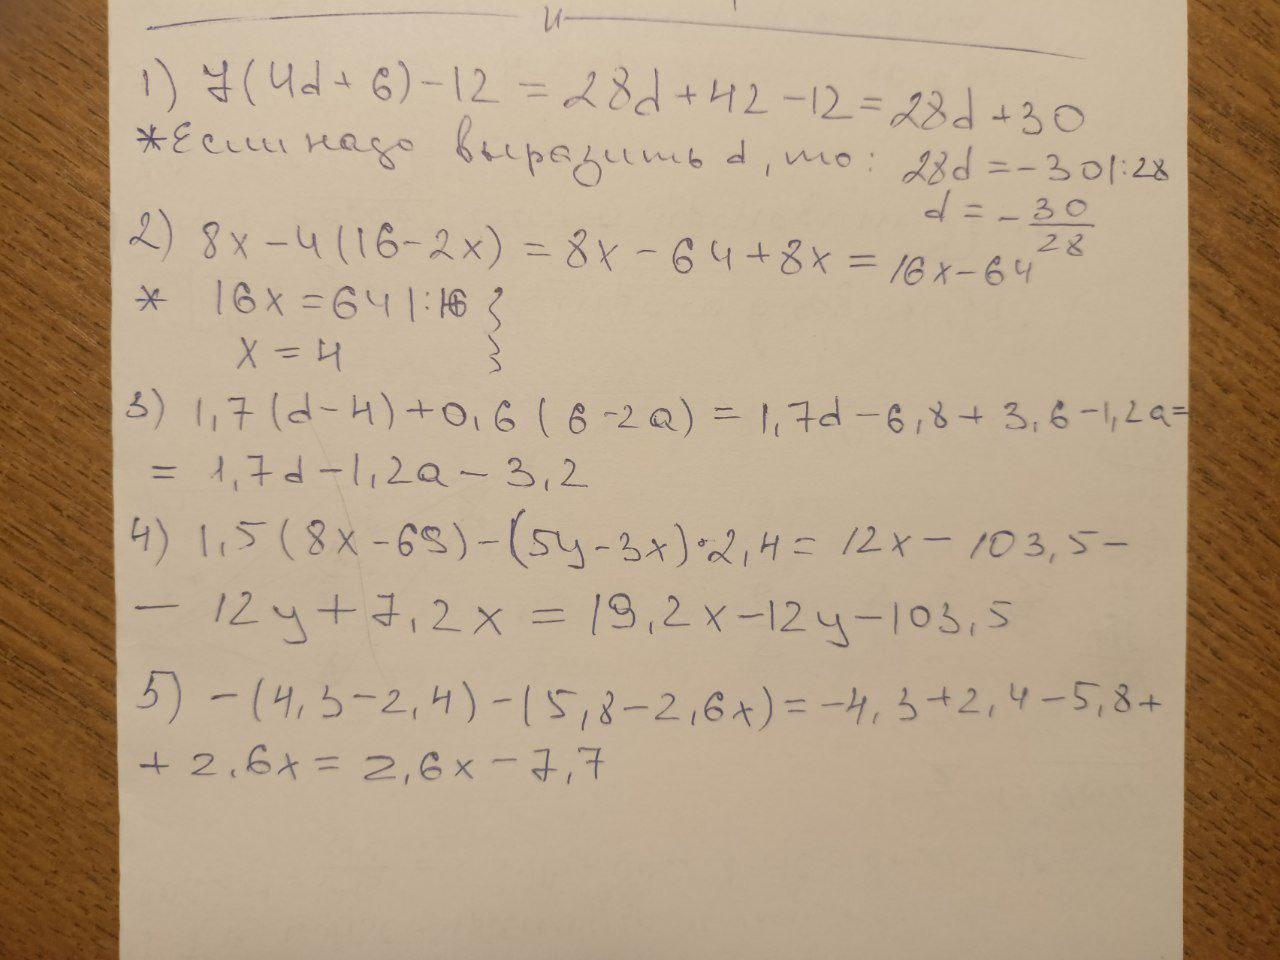 и
1) 7(4d+6)-12 = 28d+42-12 = 28d+30
*Если надо выразить d, то: 28d = -30 |:28
d = - 30/28
2) 8x-4(16-2x) = 8x-64+8x = 16x-64
* 16x = 64 |:16 }
x = 4 }
3) 1,7(d-4)+0,6(6-2a) = 1,7d-6,8+3,6-1,2a=
= 1,7d-1,2a-3,2
4) 1,5(8x-69)-(5y-3x)·2,4 = 12x-103,5-
- 12y+7,2x = 19,2x-12y-103,5
5) -(4,3-2,4)-(5,8-2,6x) = -4,3+2,4-5,8+
+ 2,6x = 2,6x-7,7